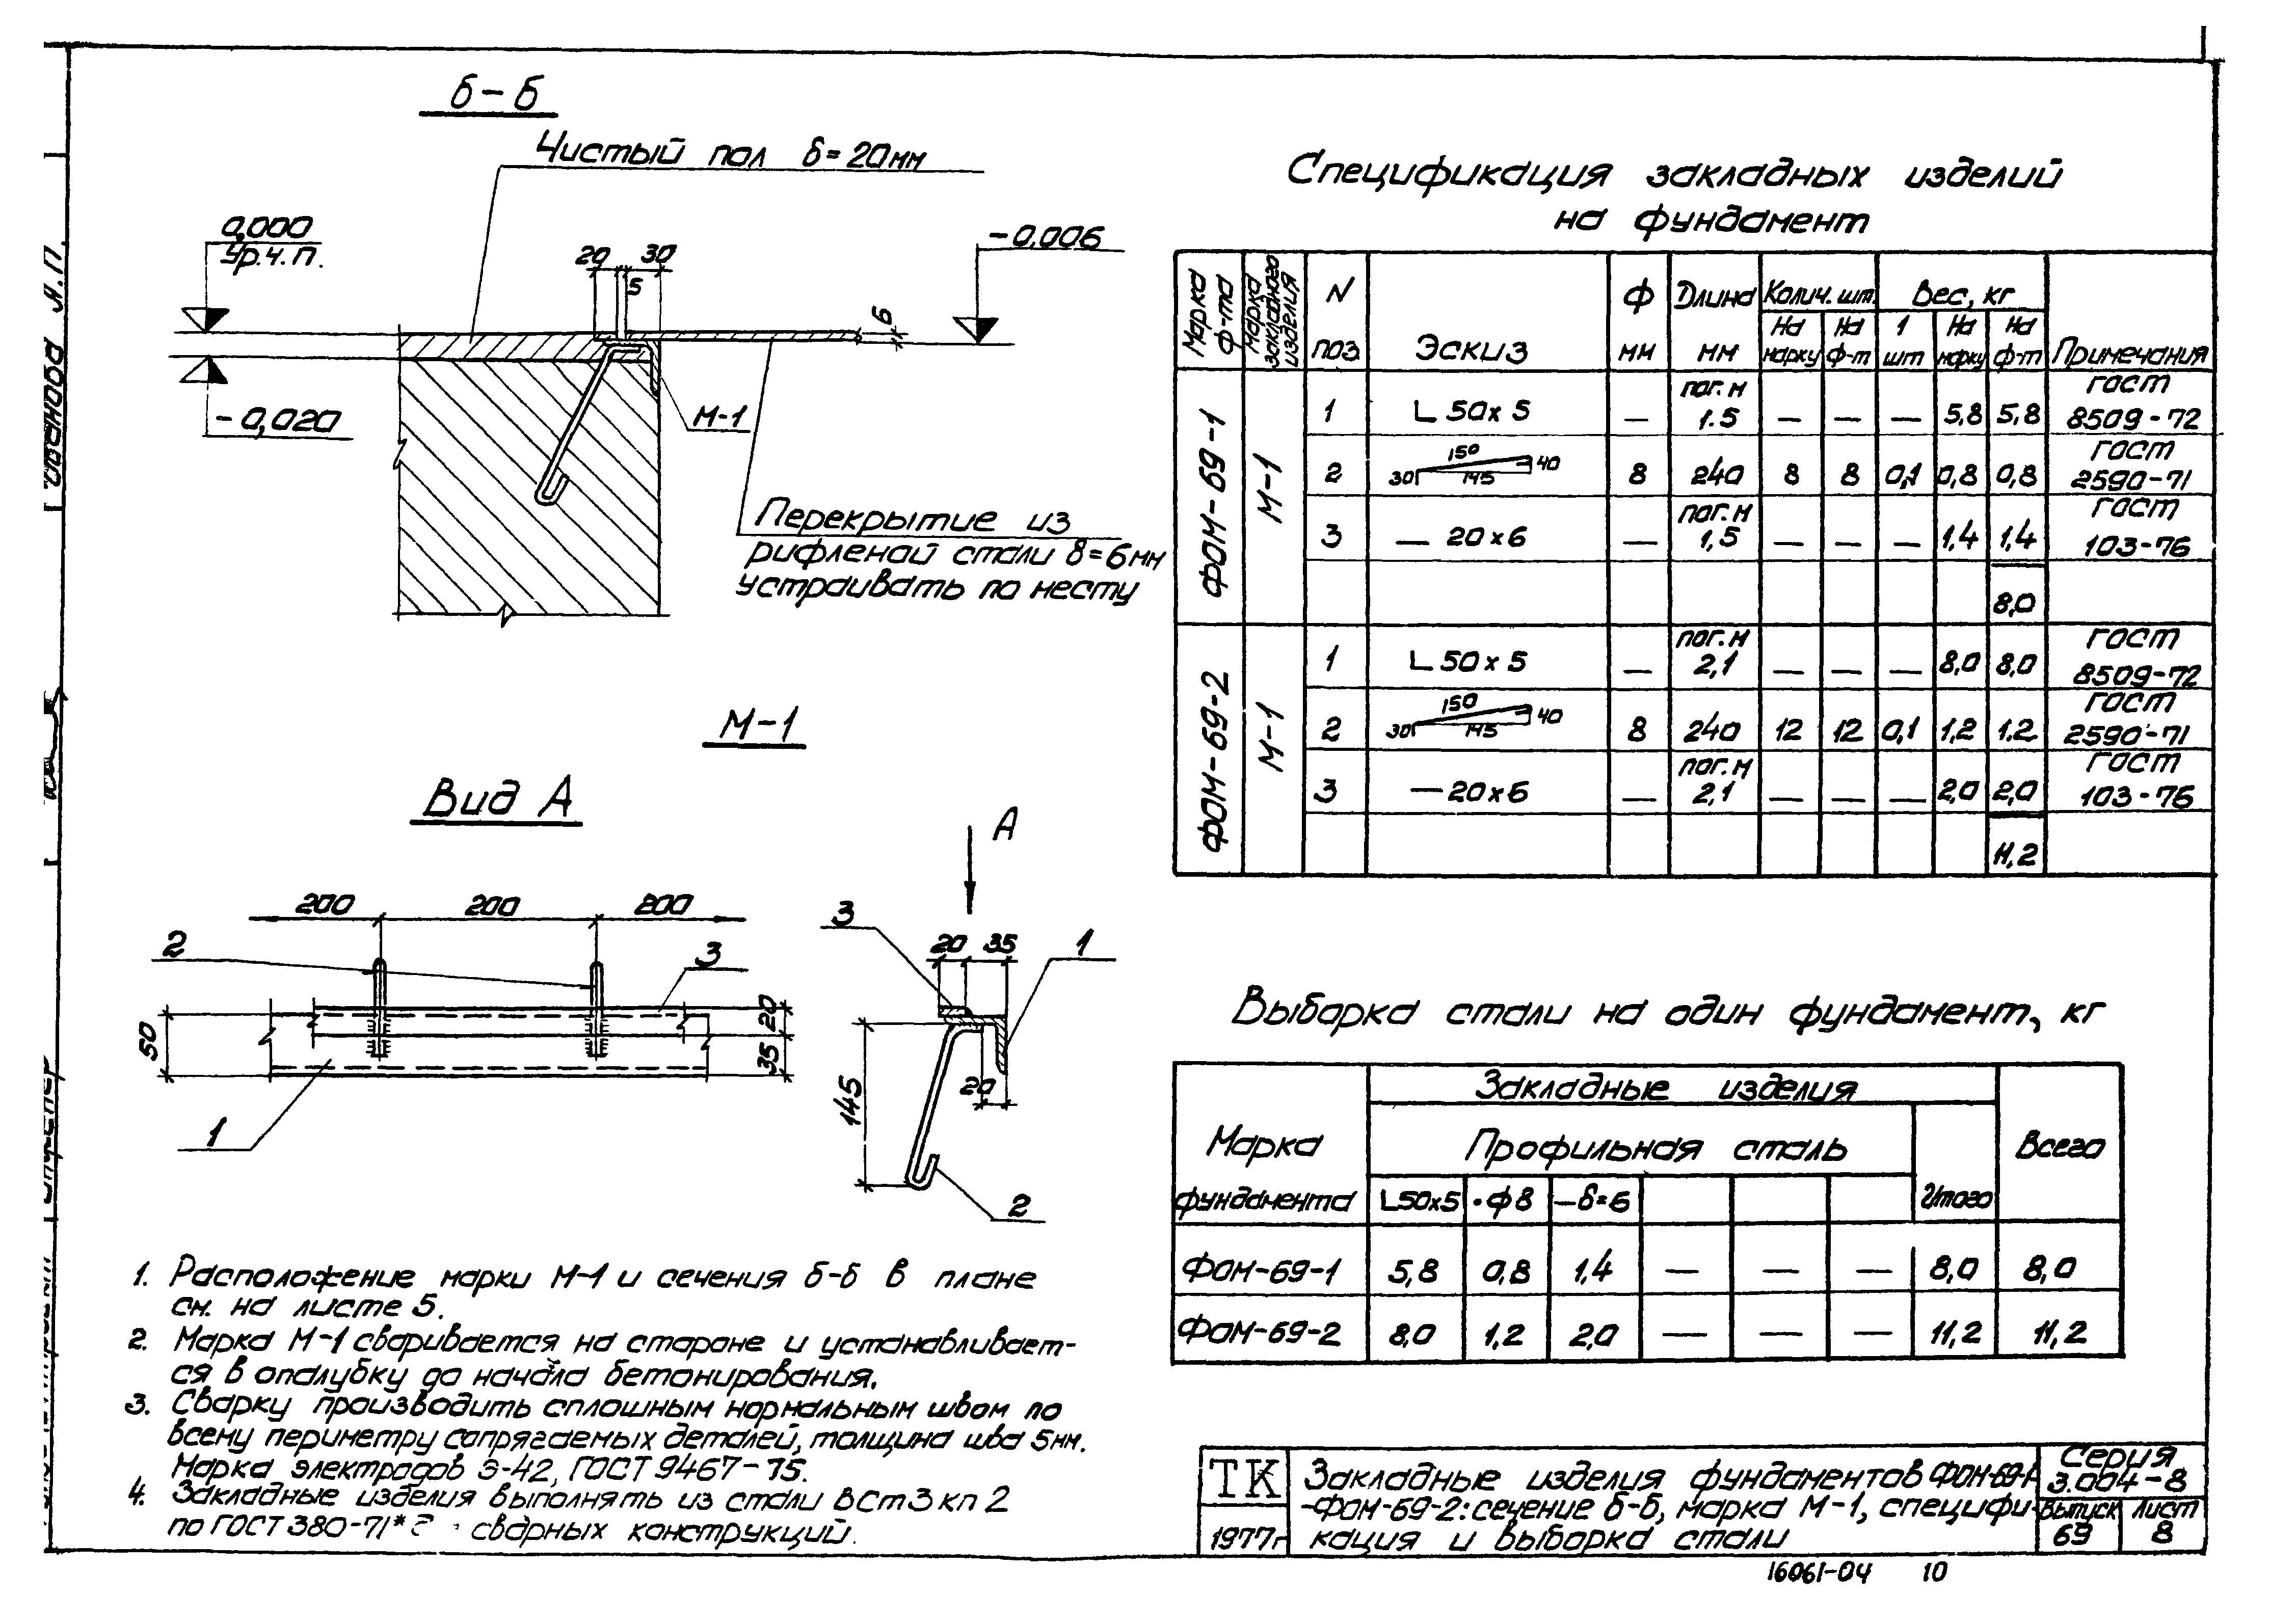 б-б
Чистый пол δ=20мм
0,000
Ур.ч.п.
20
30
5
-0,006
6
-0,020
М-1
Перекрытие из
рифленой стали δ=6мм
устраивать по месту
М-1
Вид А
А
200 200 200
2
3
50
20
35
1
3
20 35
1
145
20
2
1. Расположение марки М-1 и сечения б-б в плане
см. на листе 5.
2. Марка М-1 сваривается на стороне и устанавливает-
ся в опалубку до начала бетонирования.
3. Сварку производить сплошным нормальным швом по
всему периметру сопрягаемых деталей, толщина шва 5мм.
Марка электродов Э-42, ГОСТ 9467-75.
4. Закладные изделия выполнять из стали ВСт3кп2
по ГОСТ 380-71* сварных конструкций.
Спецификация закладных изделий
на фундамент
Марка ф-та Марка закладного изделия N поз Эскиз ф мм Длина мм Колич. шт. На марку На ф-т Вес, кг 1 шт На марку На ф-т Примечания
ФОМ-69-1 М-1
1 L 50х5 — пог.м 1.5 — — — 5,8 5,8 ГОСТ 8509-72
2 30 150 145 40 8 240 8 8 0,1 0,8 0,8 ГОСТ 2590-71
3 — 20х6 — пог.м 1,5 — — — 1,4 1,4 ГОСТ 103-76
8,0
ФОМ-69-2 М-1
1 L 50х5 — пог.м 2,1 — — — 8,0 8,0 ГОСТ 8509-72
2 30 150 145 40 8 240 12 12 0,1 1,2 1.2 ГОСТ 2590-71
3 — 20х6 — пог.м 2,1 — — — 2,0 2,0 ГОСТ 103-76
11,2
Выборка стали на один фундамент, кг
Марка фундамента Закладные изделия Всего
Профильная сталь Итого
L50х5 •ф8 —δ=6
ФОМ-69-1 5,8 0,8 1,4 — — — 8,0 8,0
ФОМ-69-2 8,0 1,2 2,0 — — — 11,2 11,2
ТК
1977г
Закладные изделия фундаментов ФОМ-69-1
-ФОМ-69-2: сечение б-б, марка М-1, специфи-
кация и выборка стали
Серия
3.004-8
Выпуск
69
Лист
8
16061-04 10